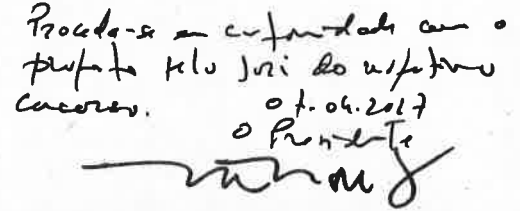 Proceda-se em conformidade com o
proposto pelo Júri do respetivo
concurso.
07.04.2017
O Presidente